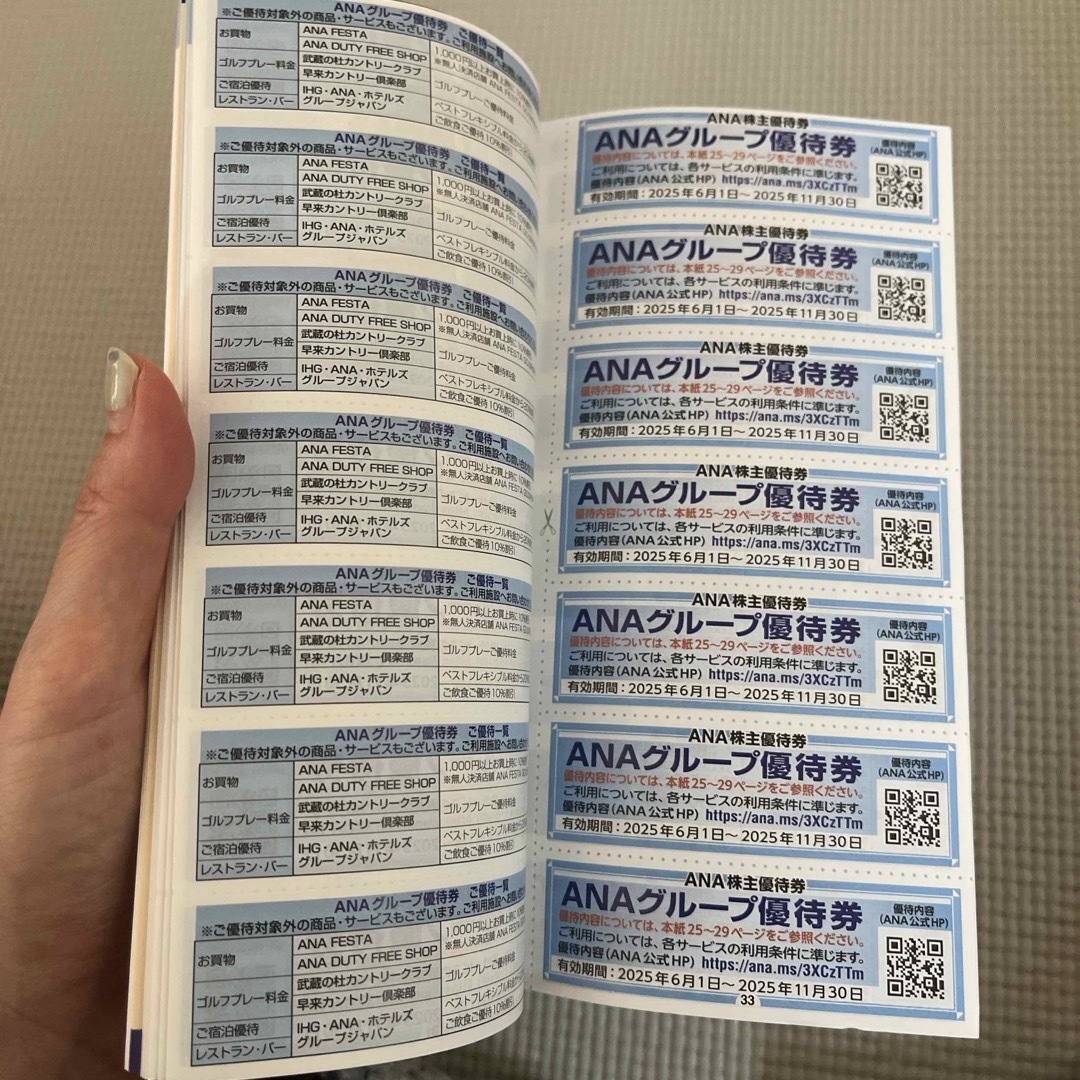 ANAグループ優待券 ご優待一覧
※ご優待対象外の商品・サービスもございます。ご利用施設へお問い
お買物
ANA FESTA
ANA DUTY FREE SHOP
1,000円以上お買上時に
※無人決済店舗 ANA FESTA
ゴルフプレー料金
武蔵の杜カントリークラブ
早来カントリー倶楽部
ゴルフプレーご優待料金
ご宿泊優待
IHG・ANA・ホテルズ
グループジャパン
ベストフレキシブル料金から
レストラン・バー
ご飲食ご優待10%割引
ANAグループ優待券 ご優待一覧
※ご優待対象外の商品・サービスもございます。ご利用施設へお問い
お買物
ANA FESTA
ANA DUTY FREE SHOP
1,000円以上お買上時に
※無人決済店舗 ANA FESTA
ゴルフプレー料金
武蔵の杜カントリークラブ
早来カントリー倶楽部
ゴルフプレーご優待料金
ご宿泊優待
IHG・ANA・ホテルズ
グループジャパン
ベストフレキシブル料金から
レストラン・バー
ご飲食ご優待10%割引
ANAグループ優待券 ご優待一覧
※ご優待対象外の商品・サービスもございます。ご利用施設へお問い
お買物
ANA FESTA
ANA DUTY FREE SHOP
1,000円以上お買上時に
※無人決済店舗 ANA FESTA
ゴルフプレー料金
武蔵の杜カントリークラブ
早来カントリー倶楽部
ゴルフプレーご優待料金
ご宿泊優待
IHG・ANA・ホテルズ
グループジャパン
ベストフレキシブル料金から
レストラン・バー
ご飲食ご優待10%割引
ANAグループ優待券 ご優待一覧
※ご優待対象外の商品・サービスもございます。ご利用施設へお問い
お買物
ANA FESTA
ANA DUTY FREE SHOP
1,000円以上お買上時に
※無人決済店舗 ANA FESTA
ゴルフプレー料金
武蔵の杜カントリークラブ
早来カントリー倶楽部
ゴルフプレーご優待料金
ご宿泊優待
IHG・ANA・ホテルズ
グループジャパン
ベストフレキシブル料金から
レストラン・バー
ご飲食ご優待10%割引
ANAグループ優待券 ご優待一覧
※ご優待対象外の商品・サービスもございます。ご利用施設へお問い
お買物
ANA FESTA
ANA DUTY FREE SHOP
1,000円以上お買上時に
※無人決済店舗 ANA FESTA
ゴルフプレー料金
武蔵の杜カントリークラブ
早来カントリー倶楽部
ゴルフプレーご優待料金
ご宿泊優待
IHG・ANA・ホテルズ
グループジャパン
ベストフレキシブル料金から
レストラン・バー
ご飲食ご優待10%割引
ANAグループ優待券 ご優待一覧
※ご優待対象外の商品・サービスもございます。ご利用施設へお問い
お買物
ANA FESTA
ANA DUTY FREE SHOP
1,000円以上お買上時に
※無人決済店舗 ANA FESTA
ゴルフプレー料金
武蔵の杜カントリークラブ
早来カントリー倶楽部
ゴルフプレーご優待料金
ご宿泊優待
IHG・ANA・ホテルズ
グループジャパン
ベストフレキシブル料金から
レストラン・バー
ご飲食ご優待10%割引
ANAグループ優待券 ご優待一覧
※ご優待対象外の商品・サービスもございます。ご利用施設へお問い
お買物
ANA FESTA
ANA DUTY FREE SHOP
1,000円以上お買上時に
※無人決済店舗 ANA FESTA
ゴルフプレー料金
武蔵の杜カントリークラブ
早来カントリー倶楽部
ゴルフプレーご優待料金
ご宿泊優待
IHG・ANA・ホテルズ
グループジャパン
ベストフレキシブル料金から
レストラン・バー
ご飲食ご優待10%割引
ANA株主優待券
ANAグループ優待券
優待内容については、本紙25～29ページをご参照ください。
ご利用については、各サービスの利用条件に準じます。
優待内容(ANA公式HP) https://ana.ms/3XCzTTm
有効期間：2025年6月1日～2025年11月30日
優待内容
(ANA公式HP)
ANA株主優待券
ANAグループ優待券
優待内容については、本紙25～29ページをご参照ください。
ご利用については、各サービスの利用条件に準じます。
優待内容(ANA公式HP) https://ana.ms/3XCzTTm
有効期間：2025年6月1日～2025年11月30日
優待内容
(ANA公式HP)
ANA株主優待券
ANAグループ優待券
優待内容については、本紙25～29ページをご参照ください。
ご利用については、各サービスの利用条件に準じます。
優待内容(ANA公式HP) https://ana.ms/3XCzTTm
有効期間：2025年6月1日～2025年11月30日
優待内容
(ANA公式HP)
ANA株主優待券
ANAグループ優待券
優待内容については、本紙25～29ページをご参照ください。
ご利用については、各サービスの利用条件に準じます。
優待内容(ANA公式HP) https://ana.ms/3XCzTTm
有効期間：2025年6月1日～2025年11月30日
優待内容
(ANA公式HP)
ANA株主優待券
ANAグループ優待券
優待内容については、本紙25～29ページをご参照ください。
ご利用については、各サービスの利用条件に準じます。
優待内容(ANA公式HP) https://ana.ms/3XCzTTm
有効期間：2025年6月1日～2025年11月30日
優待内容
(ANA公式HP)
ANA株主優待券
ANAグループ優待券
優待内容については、本紙25～29ページをご参照ください。
ご利用については、各サービスの利用条件に準じます。
優待内容(ANA公式HP) https://ana.ms/3XCzTTm
有効期間：2025年6月1日～2025年11月30日
優待内容
(ANA公式HP)
ANA株主優待券
ANAグループ優待券
優待内容については、本紙25～29ページをご参照ください。
ご利用については、各サービスの利用条件に準じます。
優待内容(ANA公式HP) https://ana.ms/3XCzTTm
有効期間：2025年6月1日～2025年11月30日
優待内容
(ANA公式HP)
33